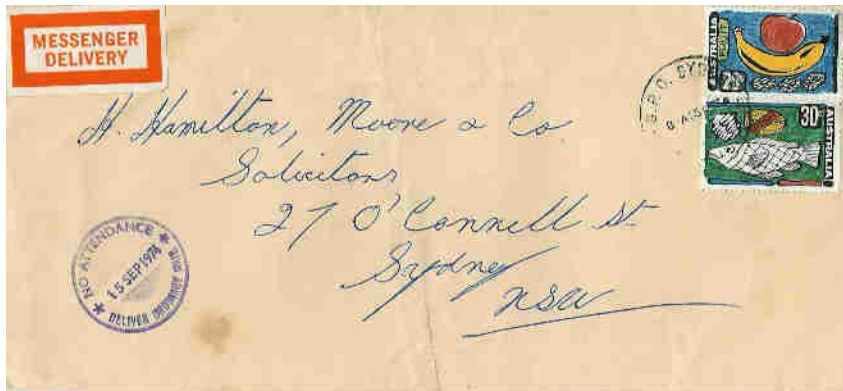 MESSENGER
DELIVERY
AUSTRALIA
FRUIT
G.P.O. SYD
30c
AUSTRALIA
H. Hamilton, Moore & Co
Solicitors
27 O'Connell St
Sydney
NSW
★ NO ATTENDANCE ★
15 SEP 1974
DELIVER ORDINARY DUTY